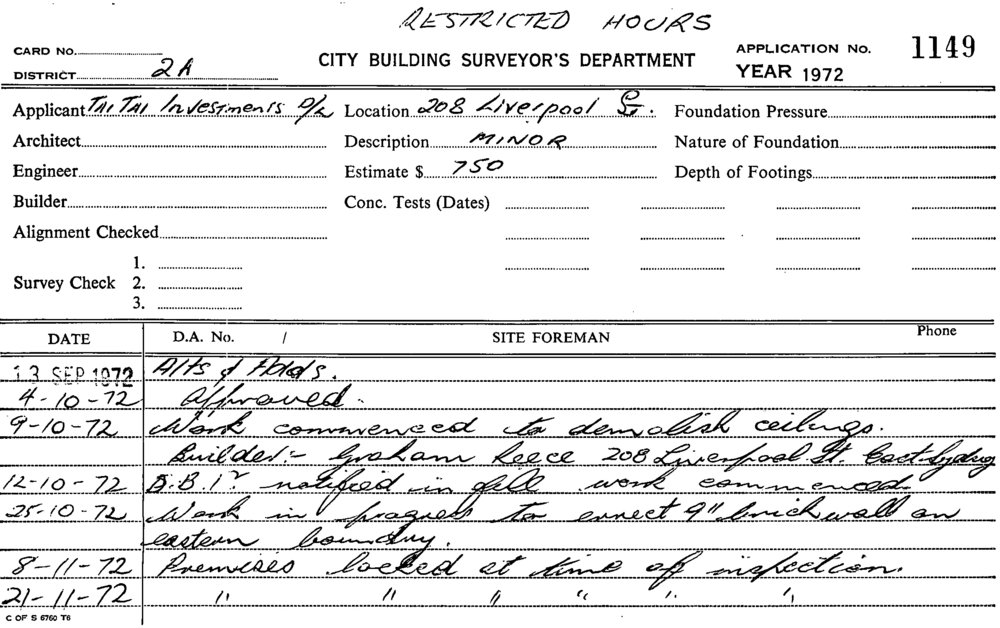 RESTRICTED HOURS
CARD No.
CITY BUILDING SURVEYOR'S DEPARTMENT
APPLICATION No. 1149
DISTRICT 2A
YEAR 1972
Applicant TAI TAI Investments P/L Location 208 Liverpool St. Foundation Pressure
Architect Description MINOR Nature of Foundation
Engineer Estimate $ 750 Depth of Footings
Builder Conc. Tests (Dates)
Alignment Checked
Survey Check 1.
2.
3.
DATE D.A. No. / SITE FOREMAN Phone
13 SEP 1972 Alts & Adds.
4-10-72 Approved.
9-10-72 Work commenced to demolish ceilings.
Builder:- Graham Reece 208 Liverpool St. East Sydney
12-10-72 B.B.I. notified in full work commenced.
25-10-72 Work in progress to errect 9" brick wall on
eastern boundry.
8-11-72 Premises locked at time of inspection.
21-11-72 " " " " " "
C OF S 6760 T6